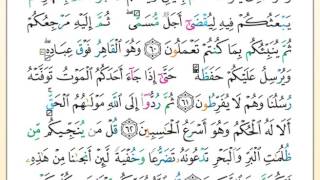 يَبْعَثُكُمْ فِيهِ لِيُقْضَىٰٓ أَجَلٌ مُّسَمًّى ۖ ثُمَّ إِلَيْهِ مَرْجِعُكُمْ
ثُمَّ يُنَبِّئُكُم بِمَا كُنتُمْ تَعْمَلُونَ ٦٠ وَهُوَ ٱلْقَاهِرُ فَوْقَ عِبَادِهِۦ ۖ
وَيُرْسِلُ عَلَيْكُمْ حَفَظَةً حَتَّىٰٓ إِذَا جَآءَ أَحَدَكُمُ ٱلْمَوْتُ تَوَفَّتْهُ
رُسُلُنَا وَهُمْ لَا يُفَرِّطُونَ ٦١ ثُمَّ رُدُّوٓا۟ إِلَى ٱللَّهِ مَوْلَىٰهُمُ ٱلْحَقِّ ۚ
أَلَا لَهُ ٱلْحُكْمُ وَهُوَ أَسْرَعُ ٱلْحَٰسِبِينَ ٦٢ قُلْ مَن يُنَجِّيكُم مِّن
ظُلُمَٰتِ ٱلْبَرِّ وَٱلْبَحْرِ تَدْعُونَهُۥ تَضَرُّعًا وَخُفْيَةً لَّئِنْ أَنجَىٰنَا مِنْ هَٰذِهِۦ